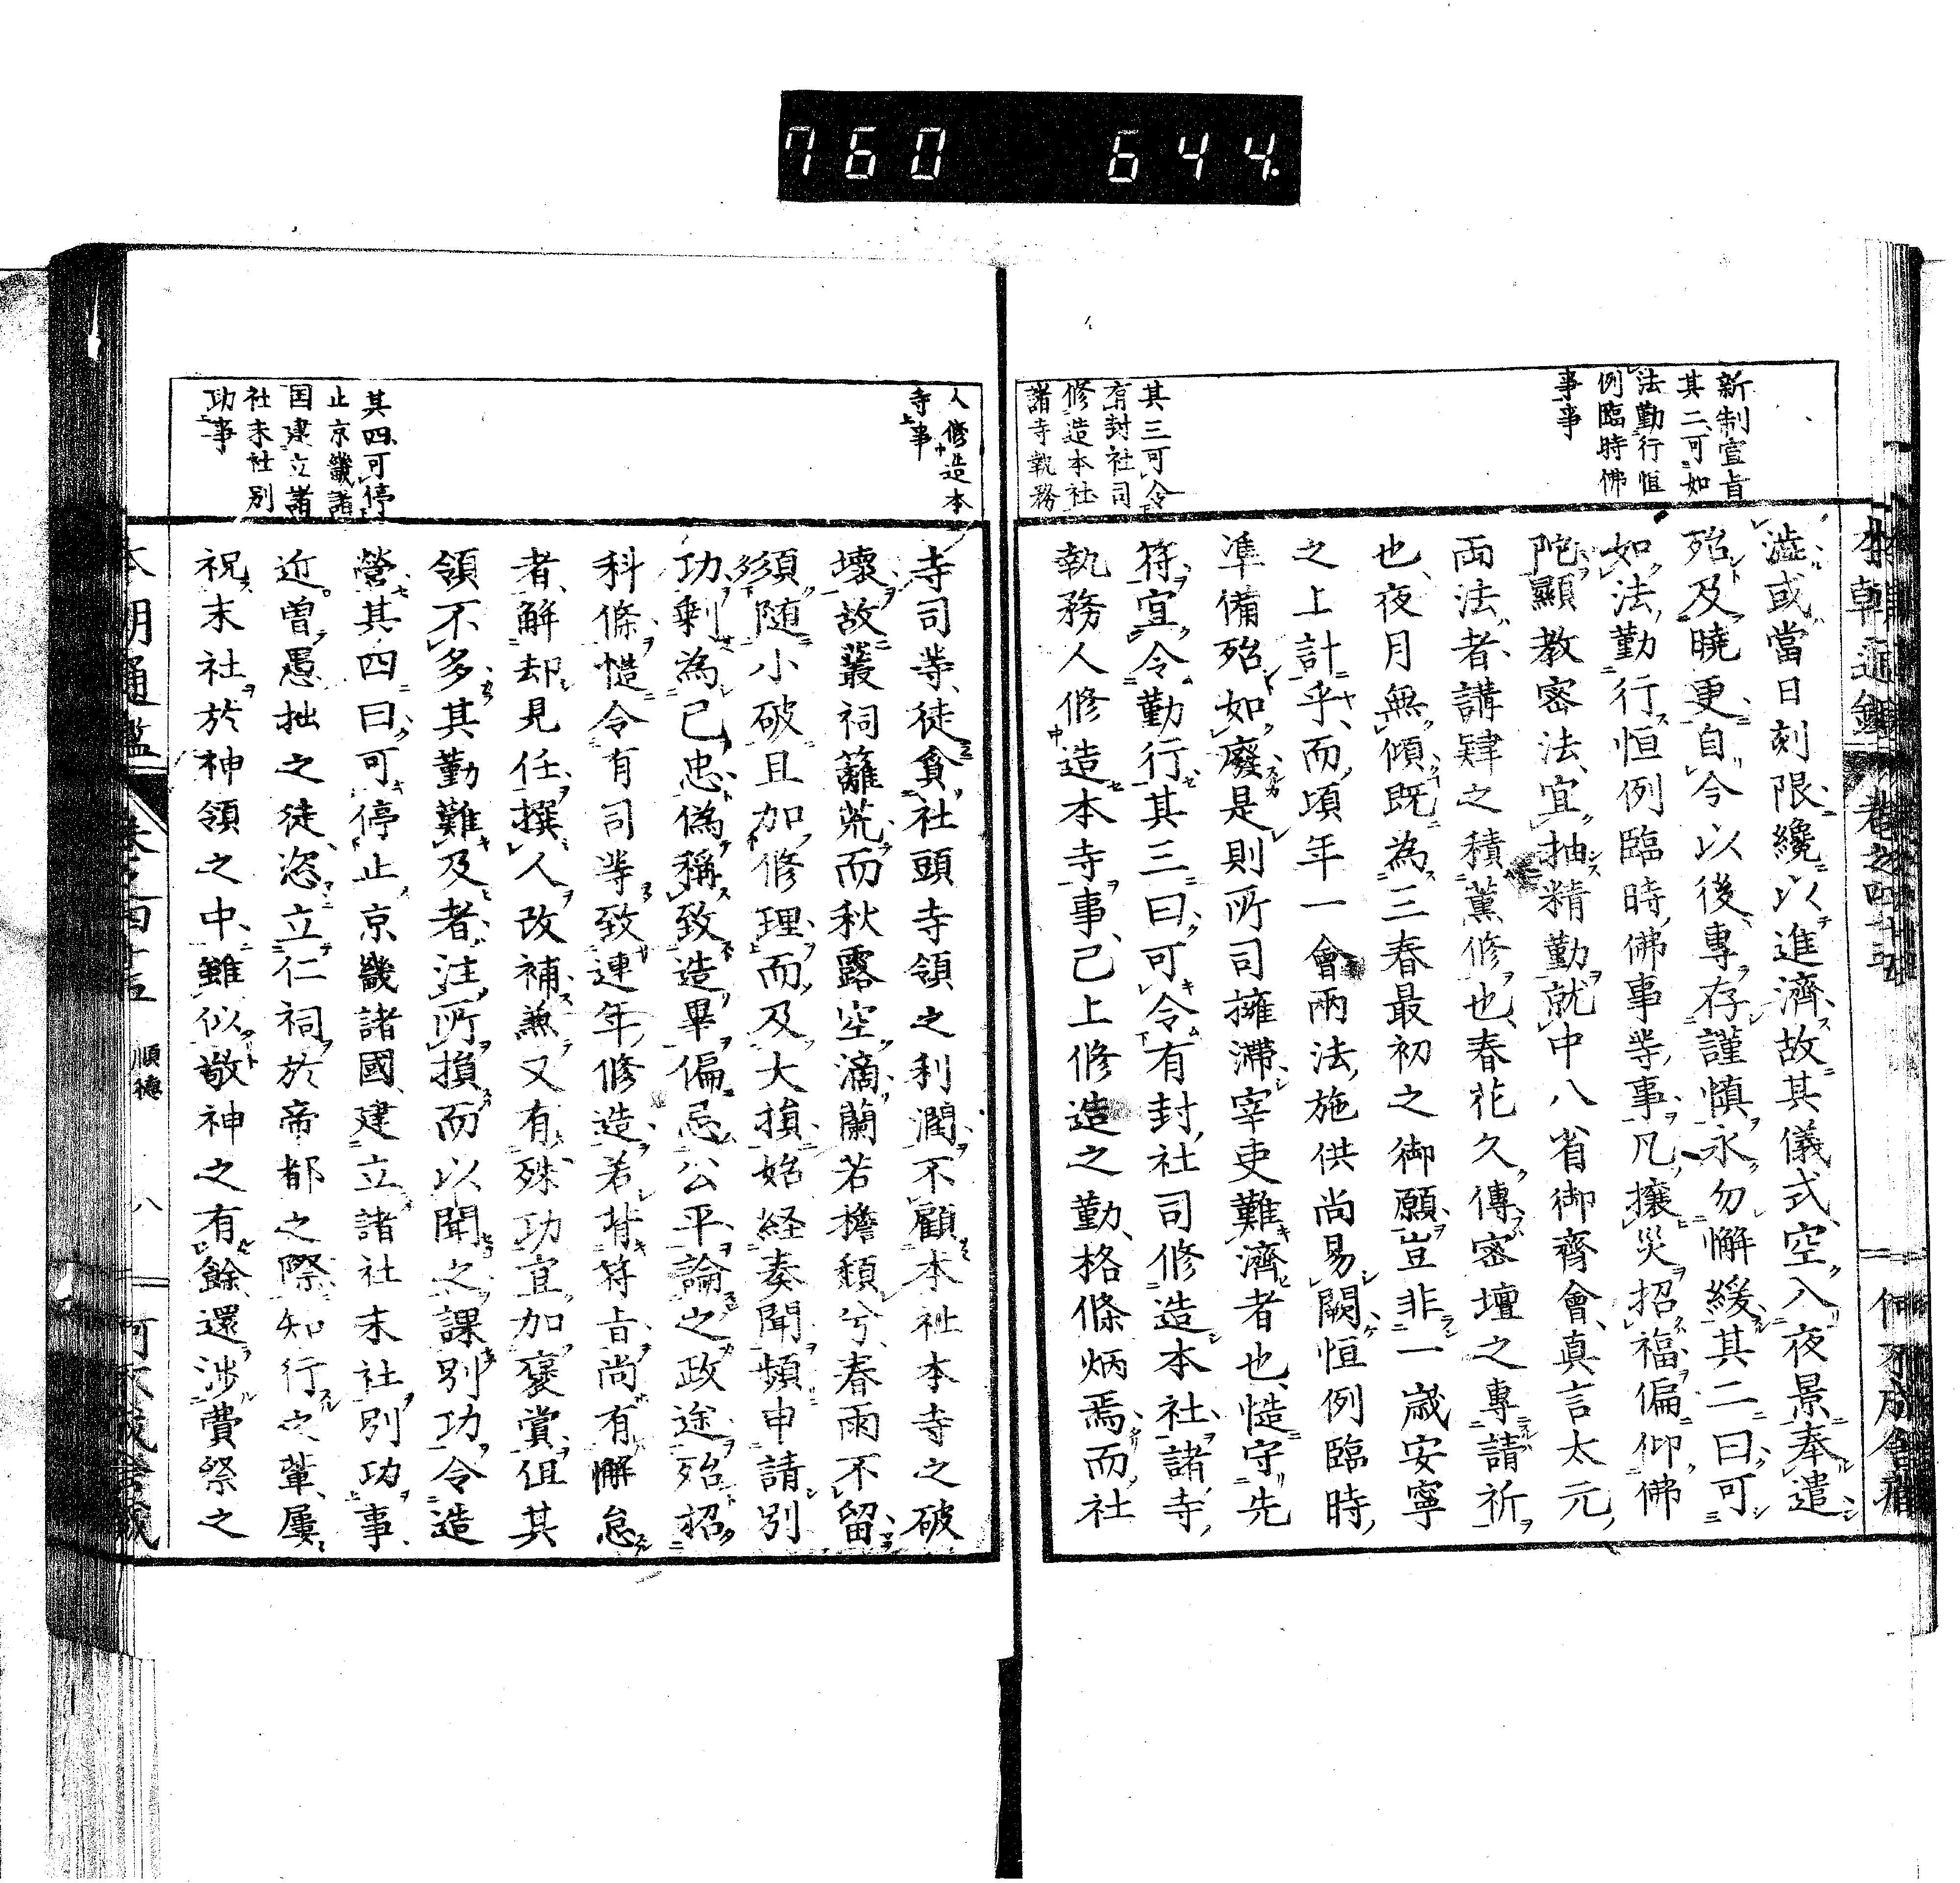 760 644
新制宣旨
其二可如
法勤行恒
例臨時佛
事事
其三可令
有封社司
修造本社
諸寺執務
澁或當日刻限纔以進濟故其儀式空入夜景奉遣
殆及曉更自今以後專存謹慎永勿懈緩其二曰可
如法勤行恒例臨時佛事等事凡攘災招福偏仰佛
陀顯教密法宜抽精勤就中八省御齊會真言太元
両法者講肄之積薫修也春花久傳密壇之專請祈
也夜月無傾既為三春最初之御願豈非一歳安寧
之上計乎而頃年一會兩法施供尚易闕恒例臨時
準備殆如廢是則所司擁滯宰吏難濟者也慥守先
符宜令勤行其三曰可令有封社司修造本社諸寺
執務人修造本寺事已上修造之勤格條炳焉而社
人修造本
寺事
其四可停
止京畿諸
国建立諸
社末社別
功事
寺司等徒貪社頭寺領之利潤不顧本社本寺之破
壞故叢祠籬荒而秋露空滴蘭若檐頽兮春雨不留
須随小破且加修理而及大損始経奏聞頻申請別
功剰為己忠偽稱致造畢偏忌公平論之政途殆招
科條慥令有司等致連年修造若背符旨尚有懈怠
者解却見任撰人改補兼又有殊功宜加褒賞但其
領不多其勤難及者注所損而以聞之課別功令造
營其四曰可停止京畿諸國建立諸社末社別功事
近曽愚拙之徒恣立仁祠於帝都之際知行之輩屢
祝末社於神領之中雖似敬神之有餘還渉費祭之
順德
八